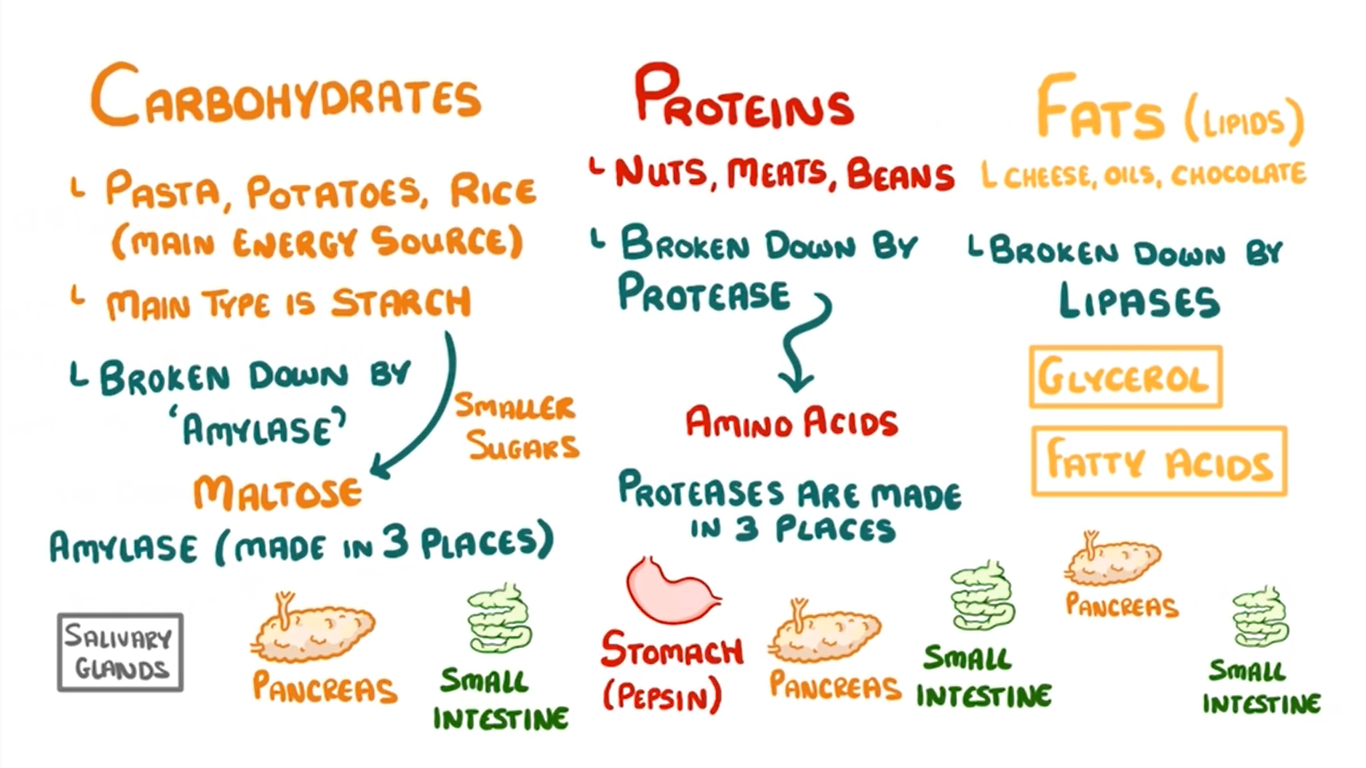 CARBOHYDRATES
└ PASTA, POTATOES, RICE
(MAIN ENERGY SOURCE)
└ MAIN TYPE IS STARCH
└ BROKEN DOWN BY
'AMYLASE'
SMALLER
SUGARS
MALTOSE
AMYLASE (MADE IN 3 PLACES)
SALIVARY
GLANDS
PANCREAS
SMALL
INTESTINE
PROTEINS
└ NUTS, MEATS, BEANS
└ BROKEN DOWN BY
PROTEASE
AMINO ACIDS
PROTEASES ARE MADE
IN 3 PLACES
STOMACH
(PEPSIN)
PANCREAS
SMALL
INTESTINE
FATS (LIPIDS)
└ CHEESE, OILS, CHOCOLATE
└ BROKEN DOWN BY
LIPASES
GLYCEROL
FATTY ACIDS
PANCREAS
SMALL
INTESTINE